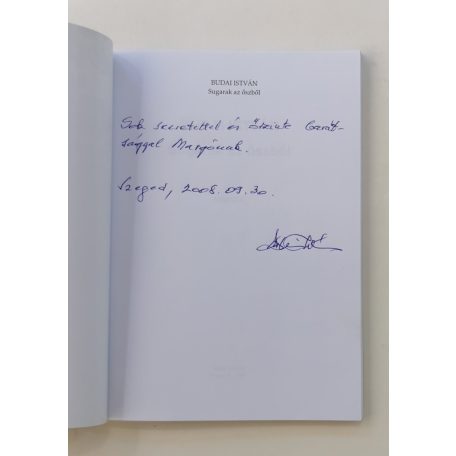 BUDAI ISTVÁN
Sugarak az őszből
Sok szeretettel és őszinte barát-
sággal Margónak.
Szeged, 2008.09.30.